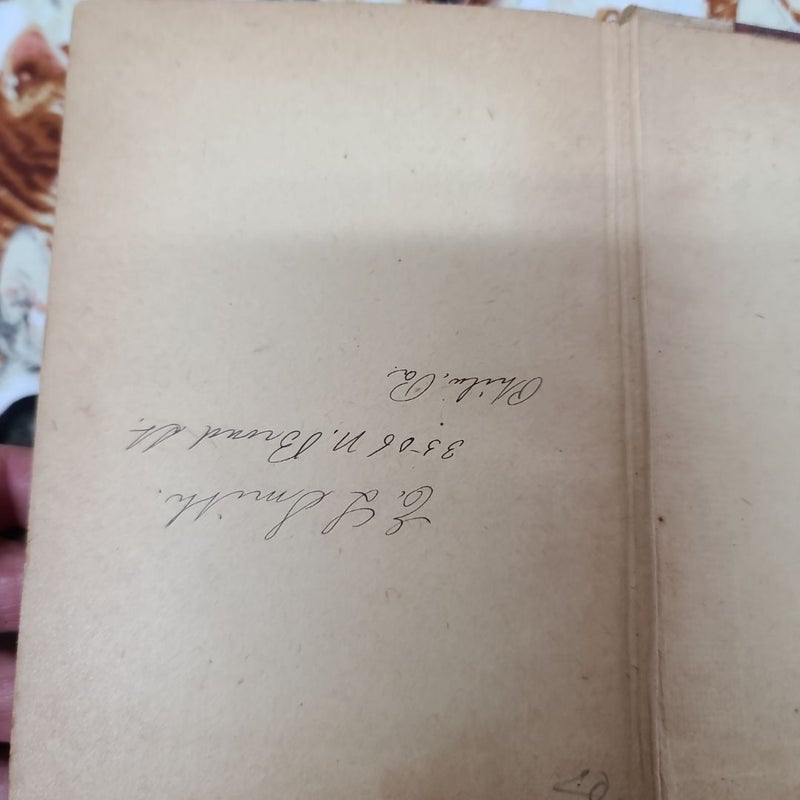 E. L. Smith.
3506 N. Broad St.
Phila. Pa.